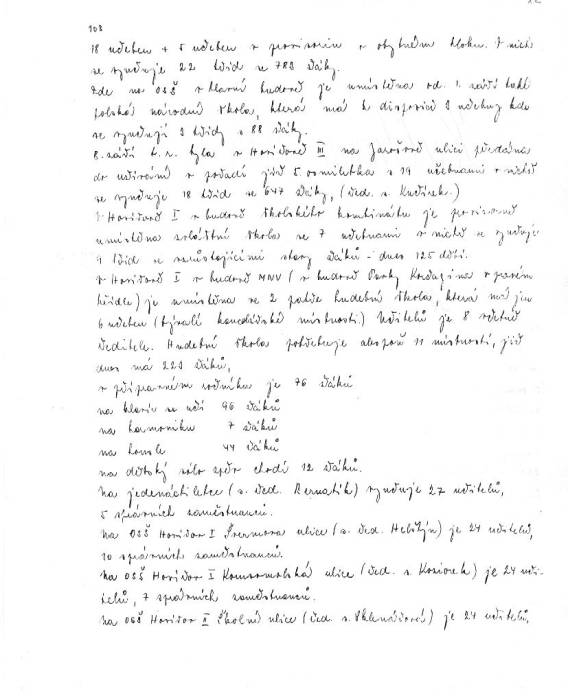 108
18 učeben + 5 učeben v provisoriu v obytném bloku. V nich
se vyučuje 22 tříd se 783 žáky.
Zde na OSŠ v hlavní budově je umístěna od 1. září také
polská národní škola, která má k disposici 3 učebny kde
se vyučují 3 třídy s 88 žáky.
8. září t. r. byla v Havířově III na Jarošově ulici předána
do užívání v pořadí již 5. osmiletka s 19 učebnami v nichž
se vyučuje 18 tříd se 647 žáky, (řed. s. Kudírek.)
V Havířově I v budově školského kombinátu je provisorně
umístěna zvláštní škola se 7 učebnami v nichž se vyučuje
9 tříd se vzrůstajícími stavy žáků - dnes 125 dětí.
V Havířově I v budově MNV (v budově v pravém
křídle) je umístěna ve 2 patře hudební škola, která má jen
6 učeben (bývalé kancelářské místnosti.) Učitelů je 8 včetně
ředitele. Hudební škola potřebuje alespoň 11 místností, již
dnes má 223 žáků,
v přípravném ročníku je 76 žáků
na klavír se učí 96 žáků
na harmoniku 7 žáků
na housle 44 žáků
na dětský sólo zpěv chodí 12 žáků.
Na jedenáctiletce (s. řed. Bernatík) vyučuje 27 učitelů,
5 správních zaměstnanců.
Na OSŠ Havířov I ulice (s. řed.) je 24 učitelů,
10 správních zaměstnanců.
Na OSŠ Havířov I Komsomolská ulice (řed. s. Koziorek) je 24 uči-
telů, 7 správních zaměstnanců.
Na OSŠ Havířov II Školní ulice (řed. s. Sklenářová) je 24 učitelů,